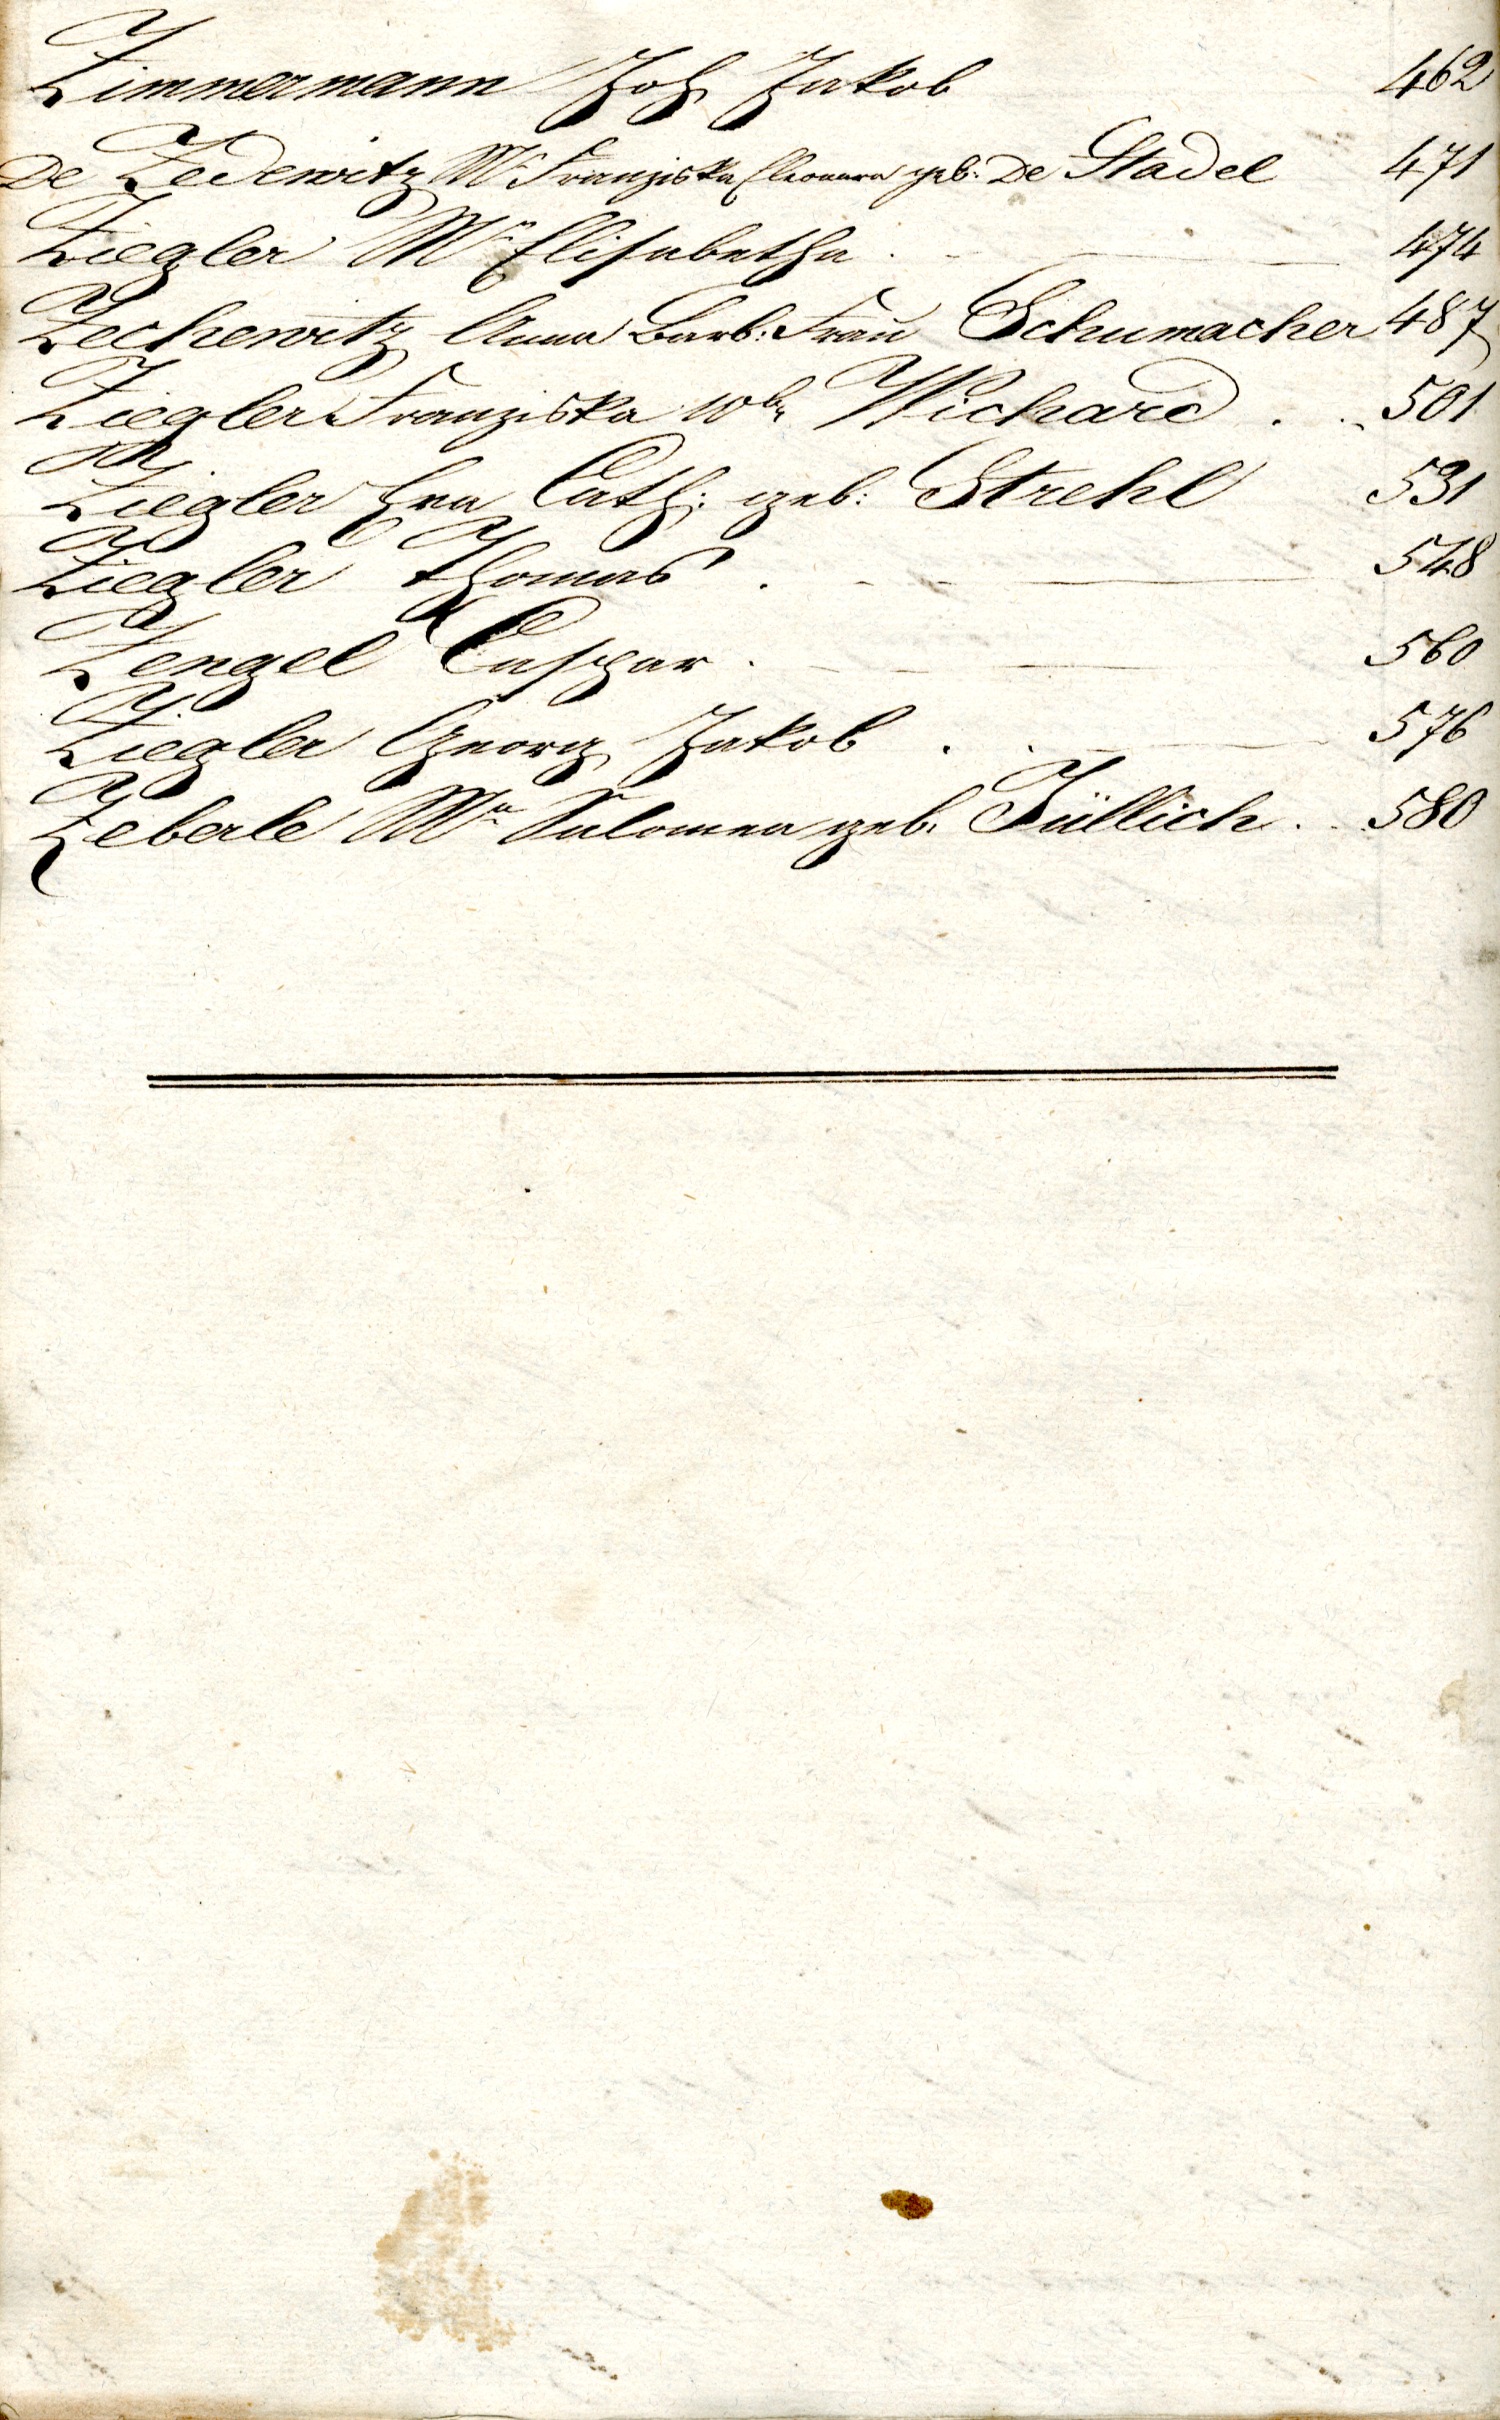 Zimmermann Joh Jakob 462
De Zedewitz Mr Franziska Eleonora geb. De Stadel 471
Ziegler Mr Elisabetha . - — — 474
Zechewitz Anna Barb: Frau Schumacher 487
Ziegler Franziska Wbr Wichard . .. 501
Ziegler Eva Cath: geb: Strehl 531
Ziegler Thomas . - — — 548
Zengel Caspar . - — — 560
Ziegler Georg Jakob . . — — 576
Zeberle Mr Salomea geb. Füllich . .. 580